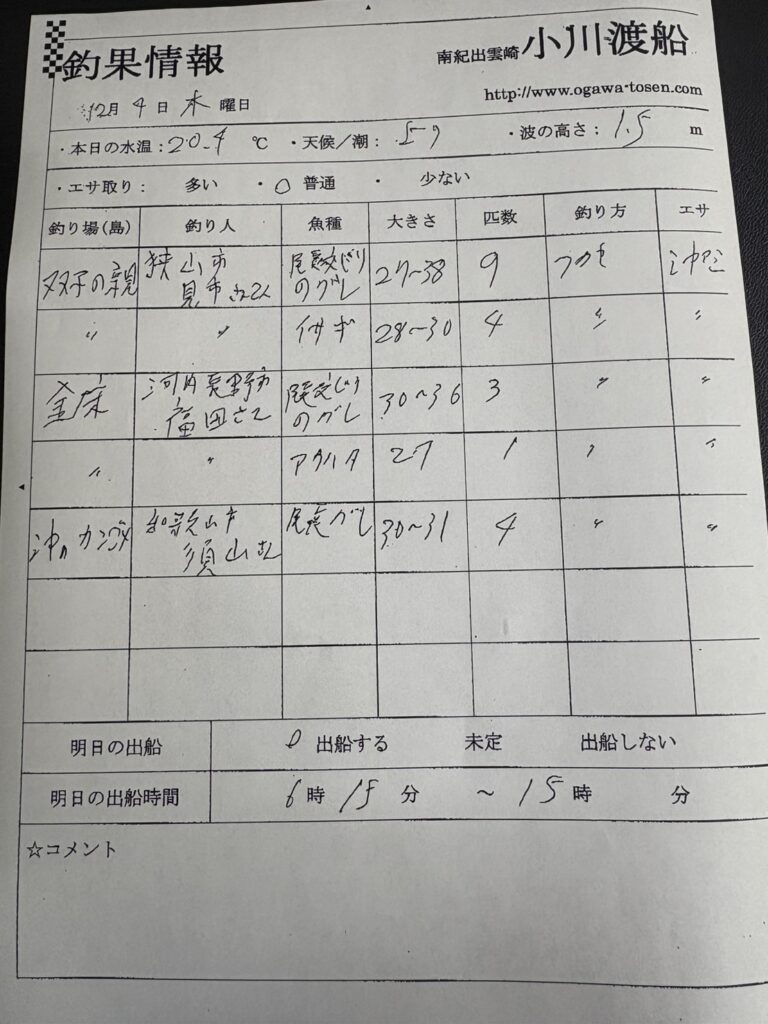 釣果情報
南紀出雲崎 小川渡船
http://www.ogawa-tosen.com
12月 4 日 木 曜日
・本日の水温：20.4 ℃ ・天候／潮： ・波の高さ： 1.5 m
・エサ取り： 多い ・ ○ 普通 ・ 少ない
釣り場(島) 釣り人 魚種 大きさ 匹数 釣り方 エサ
双子の親 狭山市 見市さん2人 尾長まじりのグレ 27〜38 9 フカセ 沖アミ
〃 〃 イサギ 28〜30 4 〃 〃
釜床 河内長野市 福田さん 尾長まじりのグレ 30〜36 3 〃 〃
〃 〃 アカハタ 27 1 〃 〃
沖のカンジキ 和歌山市 須山さん 尾長グレ 30〜31 4 〃 〃
明日の出船 ○ 出船する 未定 出船しない
明日の出船時間 6 時 15 分 〜 15 時 分
☆コメント